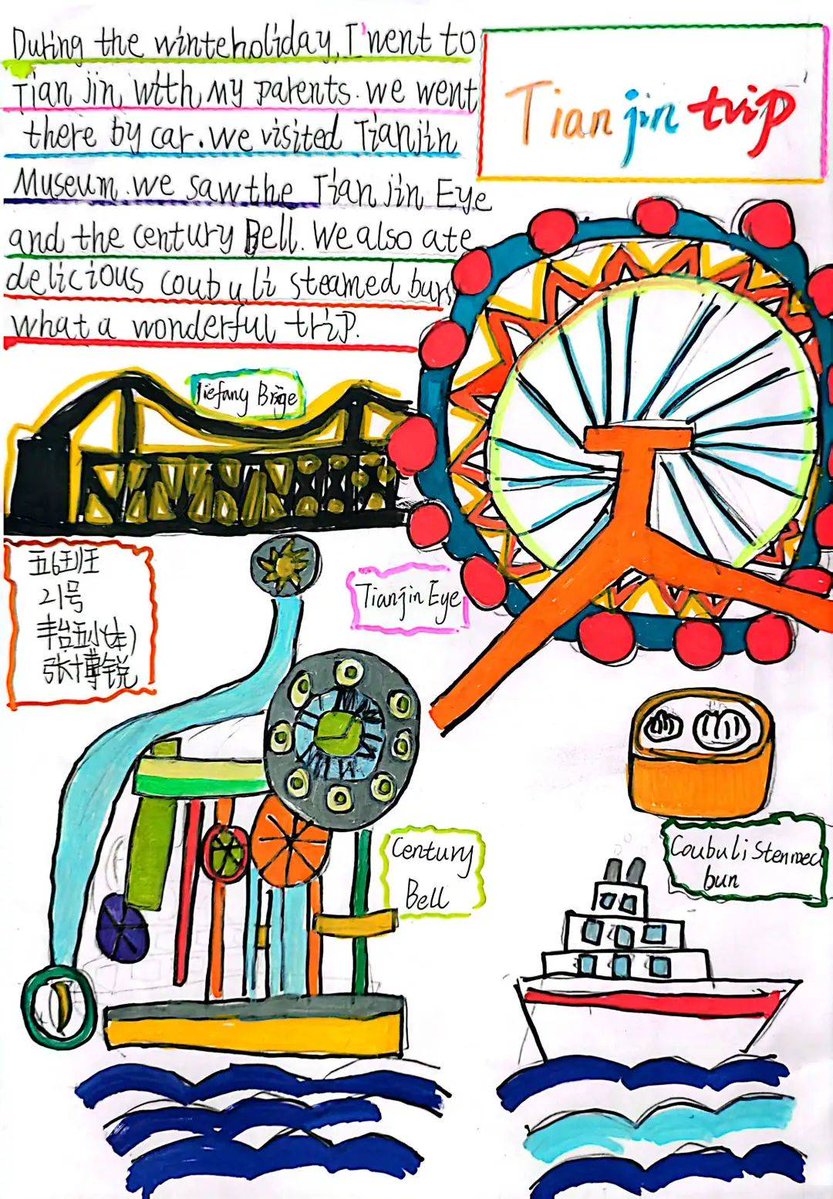 During the winteholiday, I went to
Tian jin with my parents. we went
there by car. we visited Tianjin
Museum. we saw the Tian jin Eye
and the century Bell. We also ate
delicious coubuli steamed bun
what a wonderful trip.
Tian jin trip
Jiefang Brige
五6班
21号
丰台五小(本)
张博锐
Tianjin Eye
Century
Bell
Coubuli Stenmed
bun